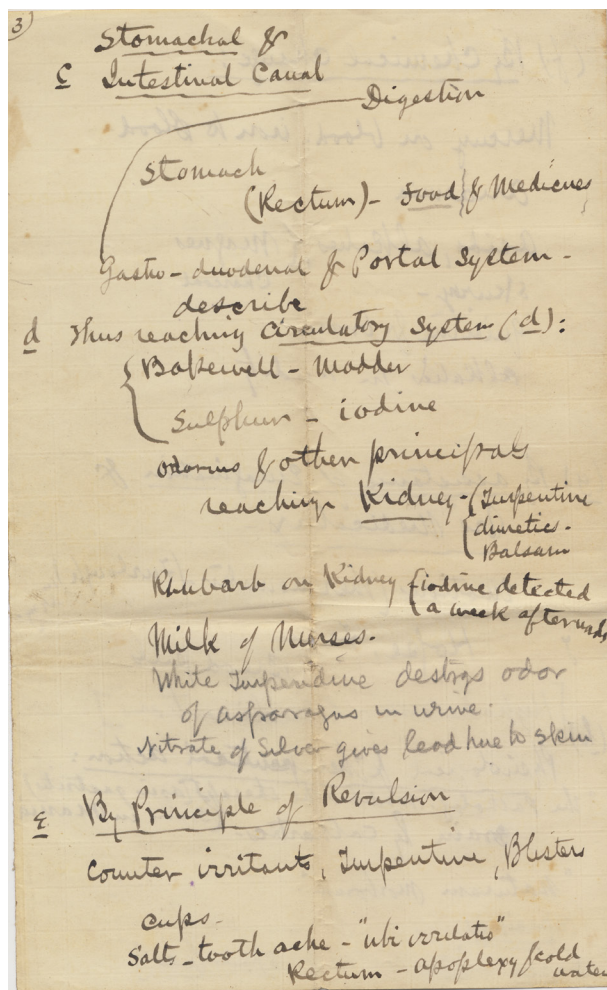 3)
Stomachal &
c Intestinal Canal
Digestion
Stomach
(Rectum) - Food & Medicines
Gastro-duodenal & Portal System -
describe
d Thus reaching Circulatory System (d):
Bakewell - Madder
Sulphur - iodine
odorous & other principals
reaching Kidney - (Turpentine
diuretics -
Balsam
Rhubarb on Kidney {iodine detected
a week afterwards
Milk of Nurses.
White Turpendine destrys odor
of asparragus in urine.
Nitrate of Silver gives lead hue to skin
e By Principle of Revulsion
Counter irritants, Turpentine, Blisters
cups -
Salts - tooth ache - "ubi irritatio"
Rectum - apoplexy & cold
water